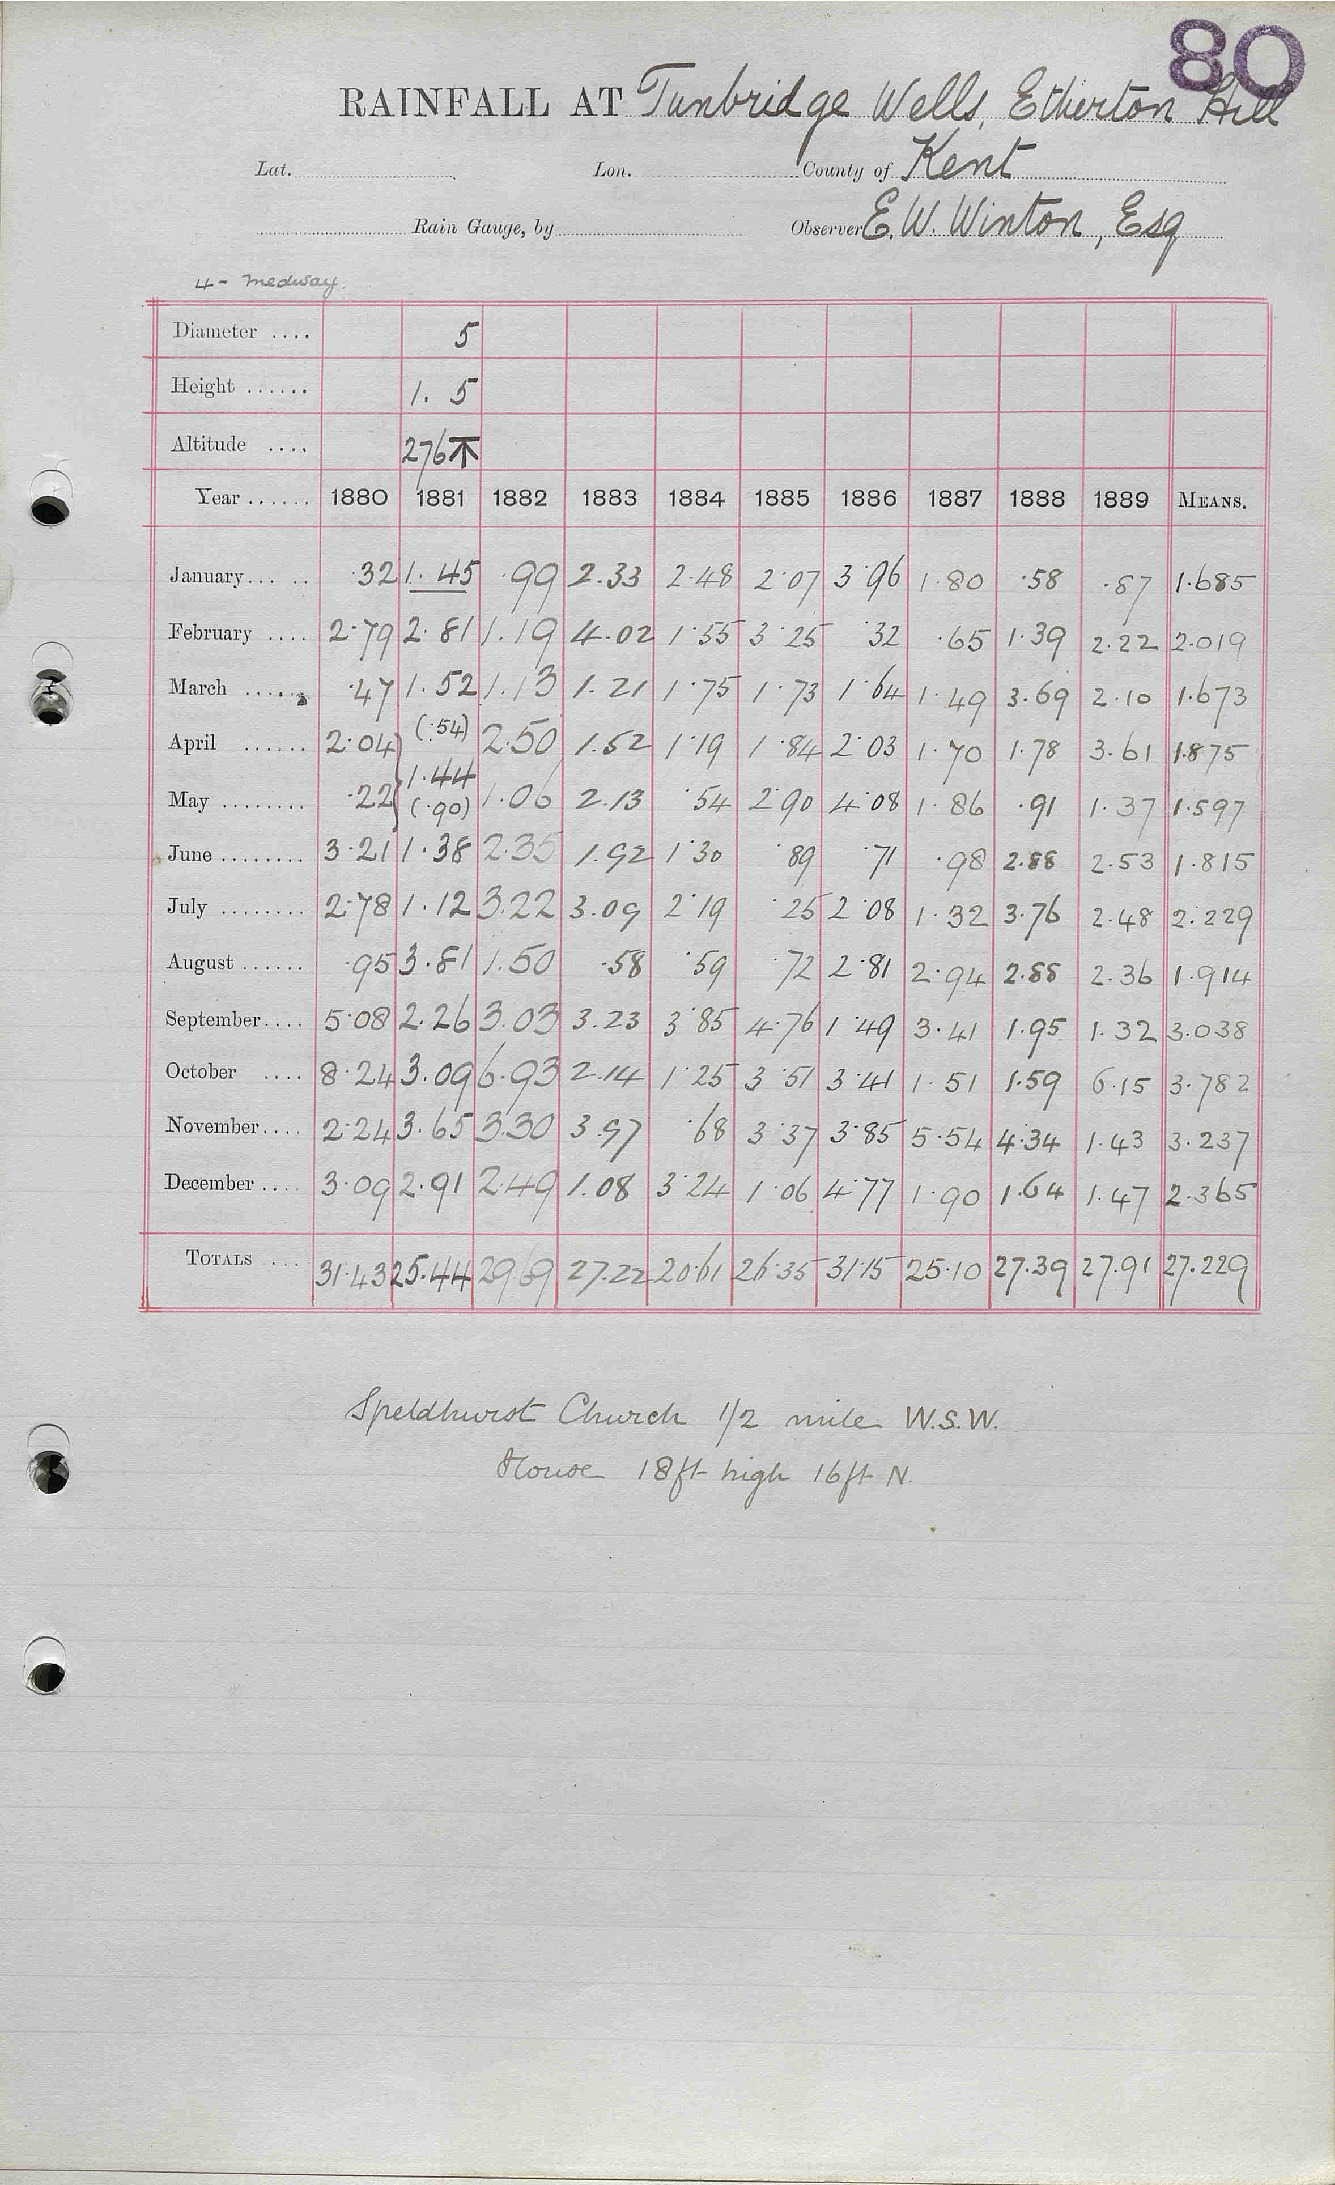 80
RAINFALL AT Tunbridge Wells, Etherton Hill
Lat. Lon. County of Kent
Rain Gauge, by Observer E. W. Winton, Esq
4 - Medway.
Diameter .... 5
Height ...... 1. 5
Altitude .... 276 ⊼
Year ...... 1880 1881 1882 1883 1884 1885 1886 1887 1888 1889 MEANS.
January... .. ·32 1.45 ·99 2.33 2·48 2·07 3·96 1·80 ·58 ·87 1·685
February .... 2·79 2·81 1·19 4·02 1·55 3·25 ·32 ·65 1·39 2·22 2·019
March ...... ·47 1·52 1·13 1·21 1·75 1·73 1·64 1·49 3·69 2·10 1·673
April ...... 2·04 (·54) 2·50 1·52 1·19 1·84 2·03 1·70 1·78 3·61 1·875
1·44
May ........ ·22 (·90) 1·06 2·13 ·54 2·90 4·08 1·86 ·91 1·37 1·597
June ........ 3·21 1·38 2·35 1·92 1·30 ·89 ·71 ·98 2·88 2·53 1·815
July ........ 2·78 1·12 3·22 3·09 2·19 ·25 2·08 1·32 3·76 2·48 2·229
August ...... ·95 3·81 1·50 ·58 ·59 ·72 2·81 2·94 2·88 2·36 1·914
September.... 5·08 2·26 3·03 3·23 3·85 4·76 1·49 3·41 1·95 1·32 3·038
October .... 8·24 3·09 6·93 2·14 1·25 3·51 3·41 1·51 1·59 6·15 3·782
November.... 2·24 3·65 3·30 3·97 ·68 3·37 3·85 5·54 4·34 1·43 3·237
December .... 3·09 2·91 2·49 1·08 3·24 1·06 4·77 1·90 1·64 1·47 2·365
TOTALS ... 31·43 25·44 29·69 27·22 20·61 26·35 31·15 25·10 27·39 27·91 27·229
Speldhurst Church 1/2 mile W.S.W.
House 18ft high 16ft N.